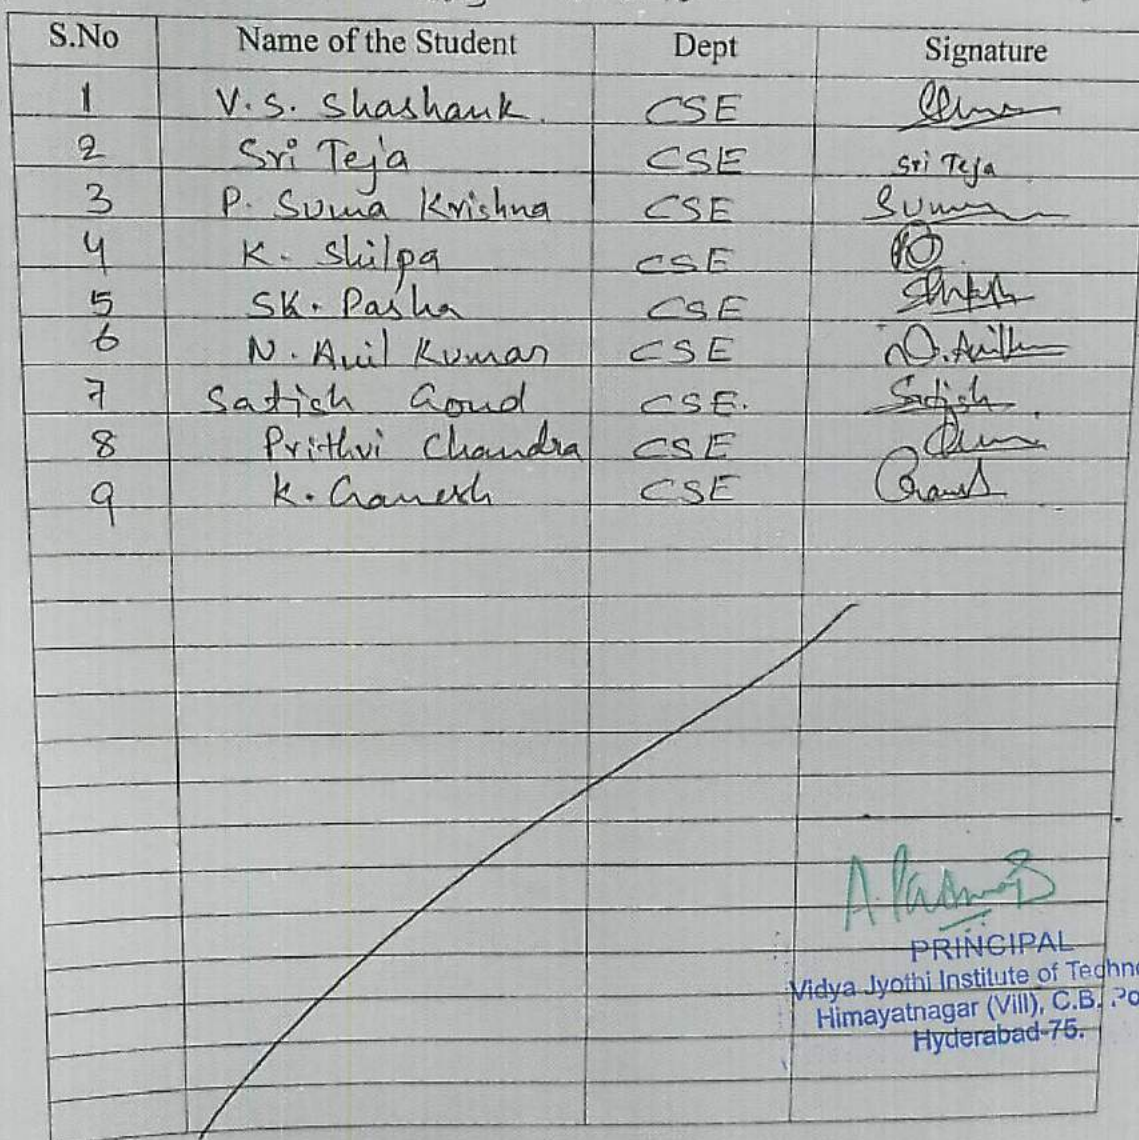 S.No Name of the Student Dept Signature
1 V.S. Shashank. CSE
2 Sri Teja CSE Sri Teja
3 P. Suma Krishna CSE Suma
4 K. Shilpa CSE
5 SK. Pasha CSE
6 N. Anil Kumar CSE N. Anil
7 Satish Goud CSE. Satish
8 Prithvi Chandra CSE
9 K. Ganesh CSE
PRINCIPAL
Vidya Jyothi Institute of Techno
Himayatnagar (Vill), C.B. Po
Hyderabad-75.